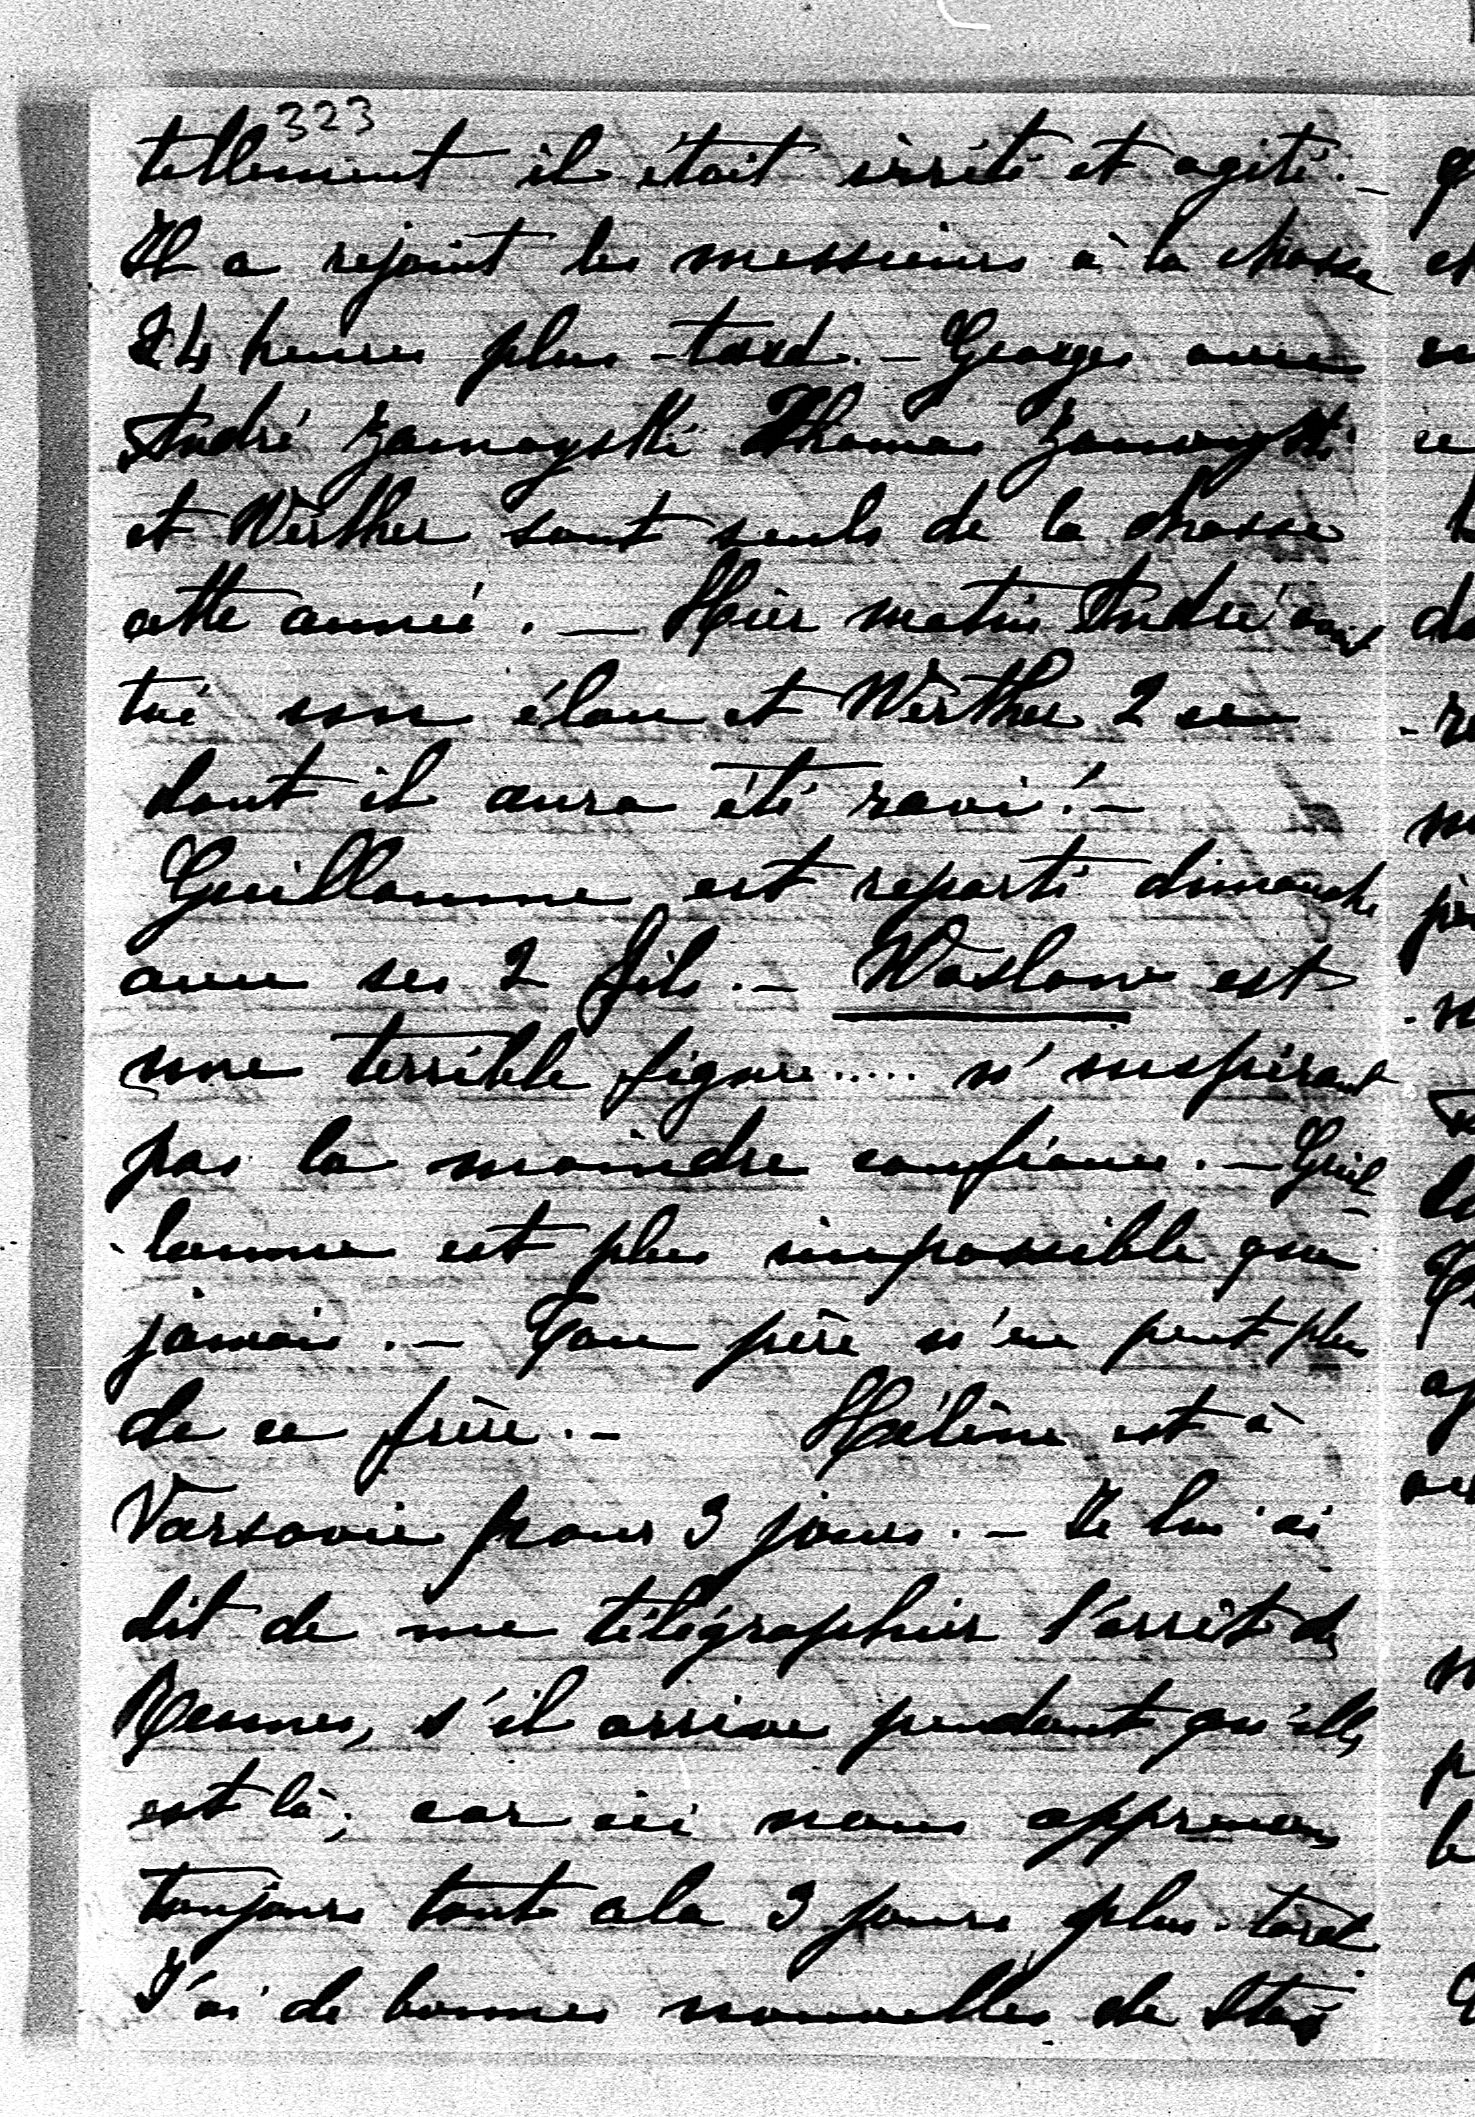 323
tellement il était irrité et agité. –
Il a rejoint les messieurs à la chasse
24 heures plus tard. – Georges avec
André Zamoyski Thomas Zamoyski
et Werther sont seuls de la chasse
cette année. – Hier matin André avait
tué son élan et Werther 2
dont il aura été ravi! –
Guillaume est reparti dimanche
avec ses 2 fils. – Waslaw est
une terrible figure ..... n'inspirant
pas la moindre confiance. – Guil-
laume est plus impossible que
jamais. – Ton père n'en peut plus
de ce frère. – Hélène est à
Varsovie pour 3 jours. – Je lui ai
dit de me télégraphier l'arrêt de
Rennes, s'il arrive pendant qu'elle
est là; car ici nous apprenons
toujours tout cela 3 jours plus tard
J'ai de bonnes nouvelles de